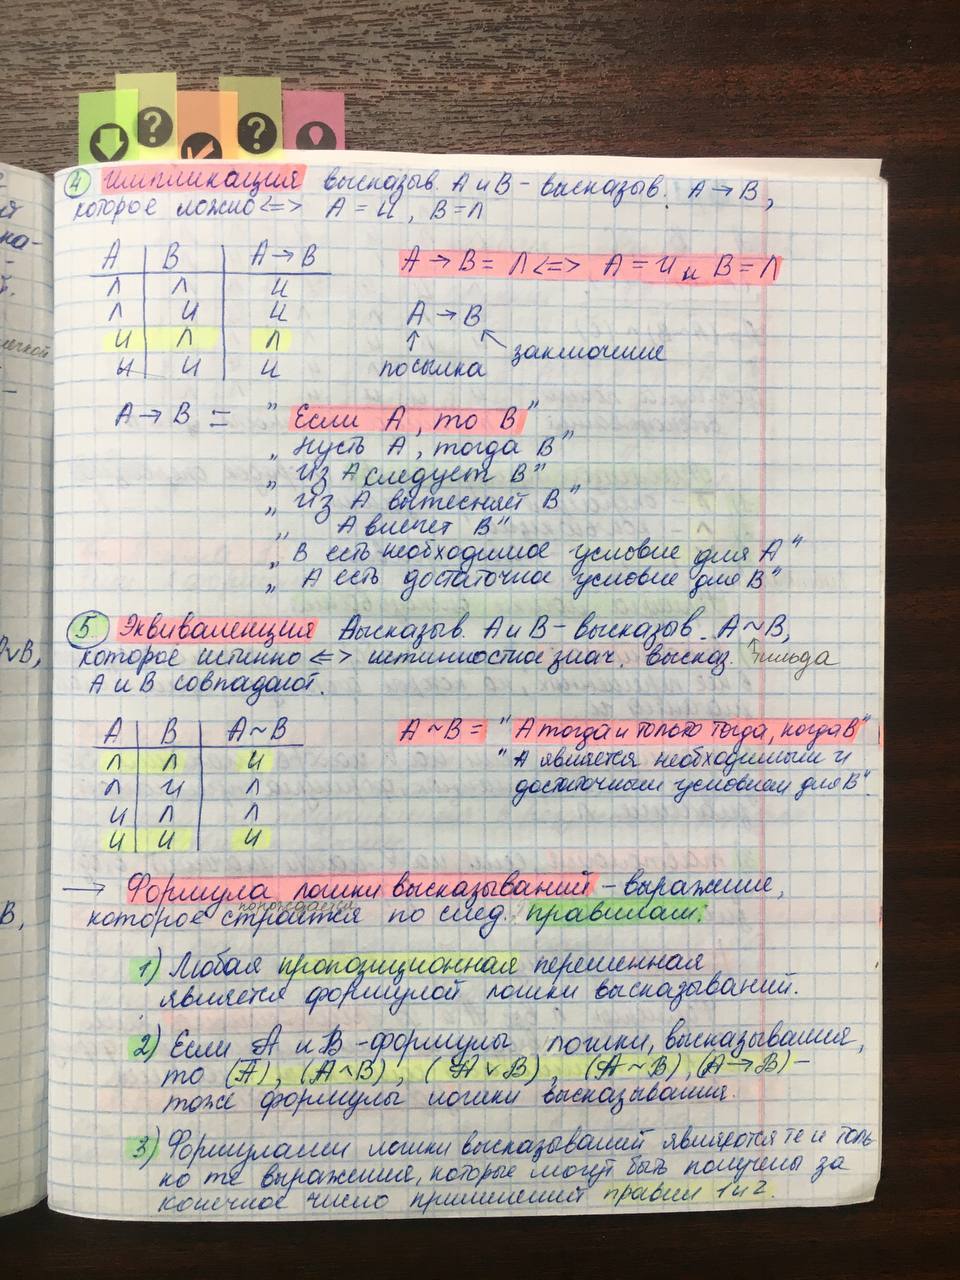 ?
?
4 Импликация высказыв. А и В – высказыв. А → В,
которое ложно <=> А = И, В = Л
А В А → В
Л Л И
Л И И
И Л Л
И И И
А → В = Л <=> А = И и В = Л
А → В
посылка заключение
А → В = "Если А, то В"
"Пусть А, тогда В"
"Из А следует В"
"Из А вытесняет В"
"А влечет В"
"В есть необходимое условие для А"
"А есть достаточное условие для В"
5. Эквиваленция высказыв. А и В – высказыв. А ~ В,
которое истинно <=> истинностное знач. высказ. тильда
А и В совпадают.
А В А ~ В
Л Л И
Л И Л
И Л Л
И И И
А ~ В = "А тогда и только тогда, когда В"
"А является необходимым и
достаточным условием для В".
→ Формула логики высказываний – выражение,
порождается
которое строится по след. правилам:
1) Любая пропозиционная переменная
является формулой логики высказываний.
2) Если А и В – формулы логики, высказывания,
то (А̅), (А ∧ В), (А ∨ В), (А ~ В), (А → В) –
тоже формулы логики высказывания.
3) Формулами логики высказываний являются те и толь-
ко те выражения, которые могут быть получены за
конечное число применений правил 1 и 2.